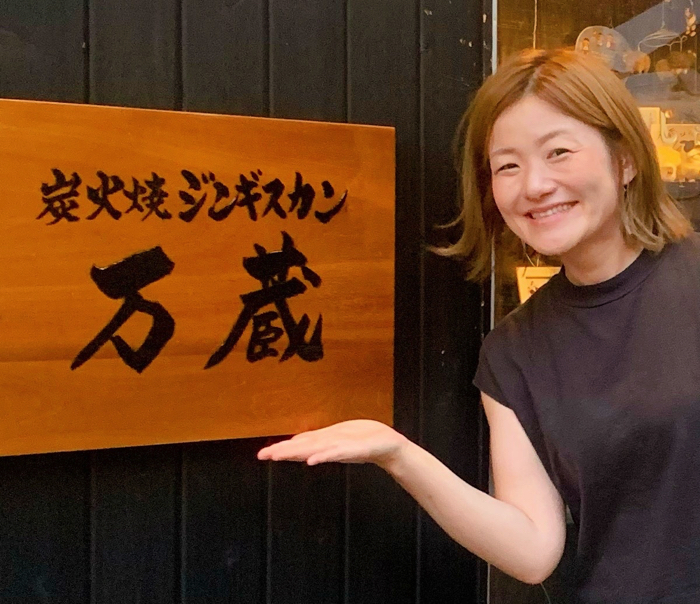 炭火焼ジンギスカン
万蔵